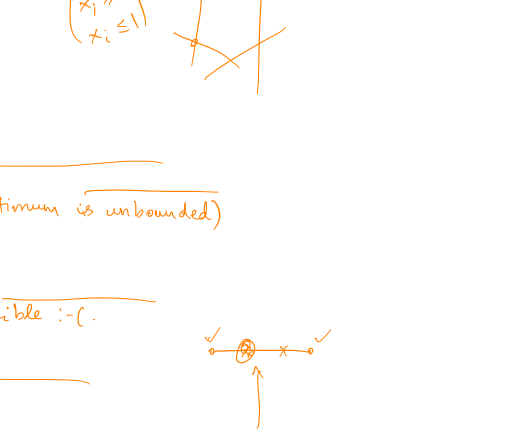 xi "
xi ≤ 1
timum is unbounded)
ible :-(.